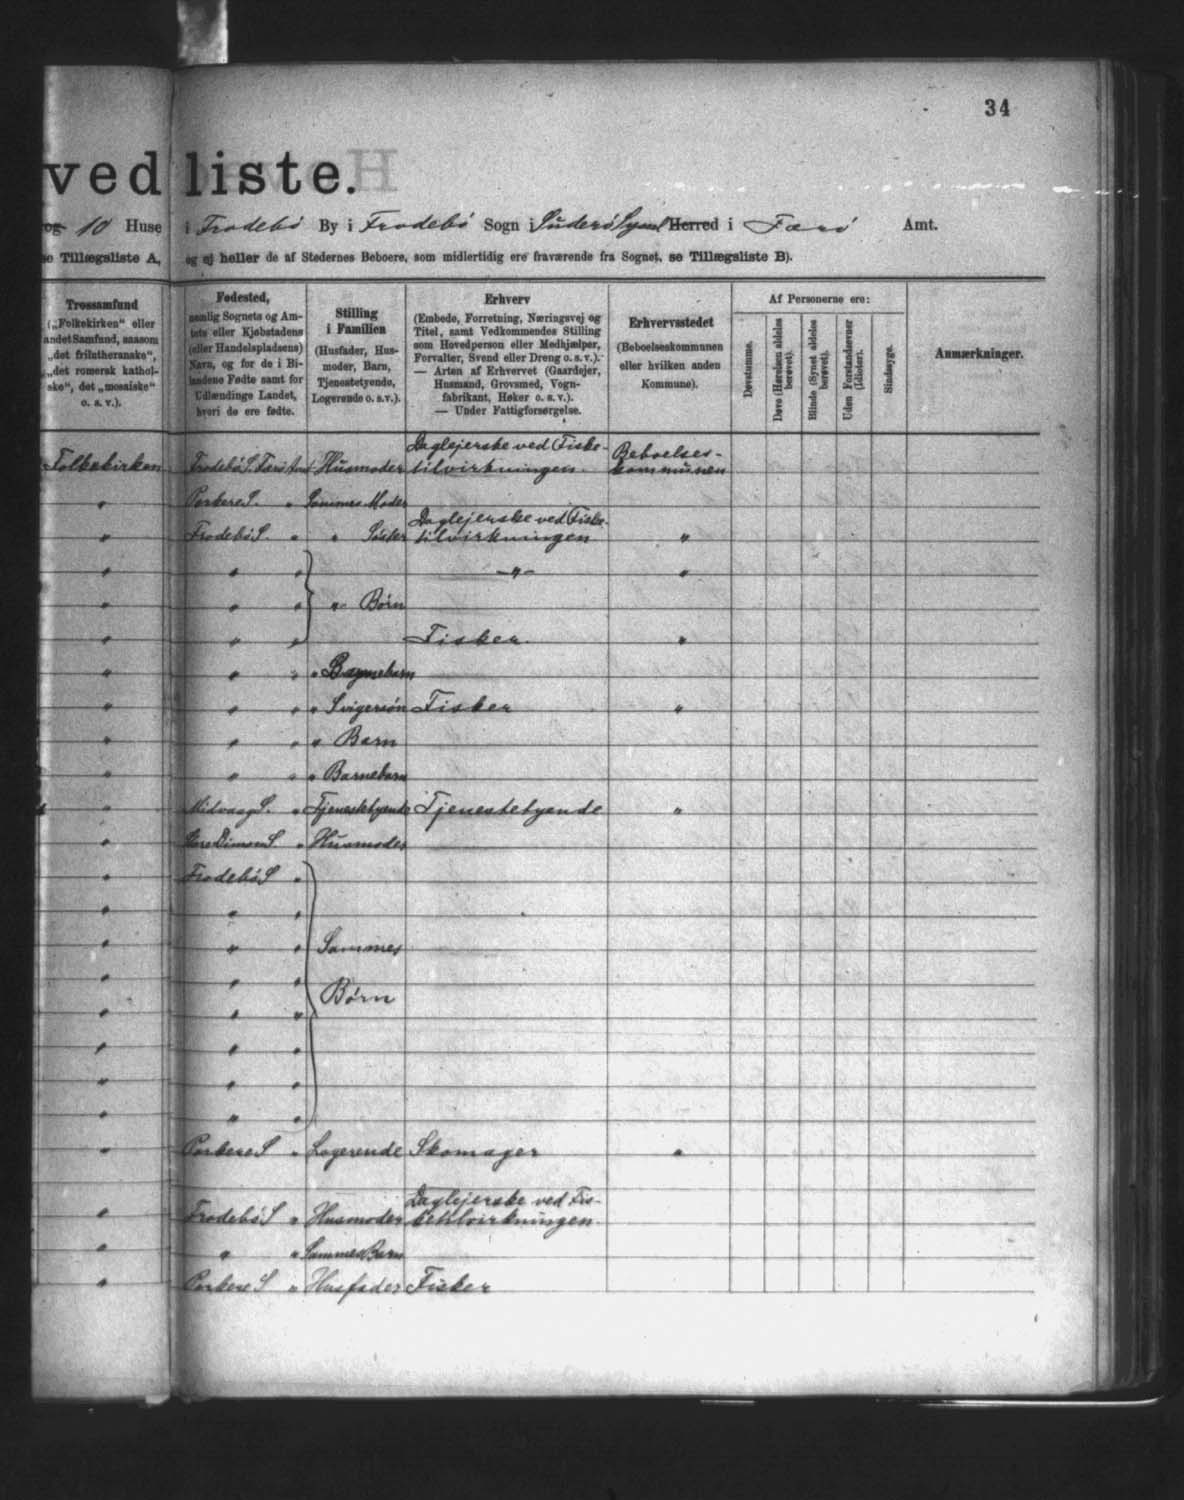 34
vedliste.
og 10 Huse i Frodebö By i Frodebö Sogn i Süderö Syssel Herred i Færö Amt.
se Tillægsliste A, og ej heller de af Stedernes Beboere, som midlertidig ere fraværende fra Sognet, se Tillægsliste B).
Trossamfund
(„Folkekirken“ eller
andet Samfund, saasom
„det frilutheranske“,
„det romersk kathol-
ske“, det „mosaiske“
o. s. v.).
Fødested,
nemlig Sognets og Am-
tets eller Kjøbstadens
(eller Handelspladsens)
Navn, og for de i Bi-
landene Fødte samt for
Udlændinge Landet,
hvori de ere fødte.
Stilling
i Familien
(Husfader, Hus-
moder, Barn,
Tjenestetyende,
Logerende o. s. v.).
Erhverv
(Embede, Forretning, Næringsvej og
Titel, samt Vedkommendes Stilling
som Hovedperson eller Medhjælper,
Forvalter, Svend eller Dreng o. s. v.).
— Arten af Erhvervet (Gaardejer,
Husmand, Grovsmed, Vogn-
fabrikant, Høker o. s. v.).
— Under Fattigforsørgelse.
Erhvervsstedet
(Beboelseskommunen
eller hvilken anden
Kommune).
Af Personerne ere:
Døvstumme.
Døve (Hørelsen aldeles
berøvet).
Blinde (Synet aldeles
berøvet).
Uden Forstandsevner
(Idioter).
Sindssyge.
Anmærkninger.
Folkekirken Frodebö S. Færö Amt Husmoder Daglejerske ved Fiske-
tilvirkningen. Beboelses-
kommunen
" Porkere S. " Sammes Moder
" Frodebö S. " " Söster Daglejerske ved Fiske-
tilvirkningen "
" " " —"— "
" " " " Börn
" " " Fisker. "
" " " " Barnebarn
" " " " Svigersön Fisker "
" " " " Barn
" " " " Barnebarn
" Midvaag S. " Tjenestetyende Tjenestetyende "
" Store Dimon S. " Husmoder
" Frodebö S "
" " "
" " " Sammes
" " " Börn
" " "
" " "
" " "
" " "
" Porkere S " Logerende Skomager "
" Frodebö S " Husmoder Daglejerske ved Fis-
ketilvirkningen.
" " " Sammes Barn
" Porkere S " Husfader Fisker